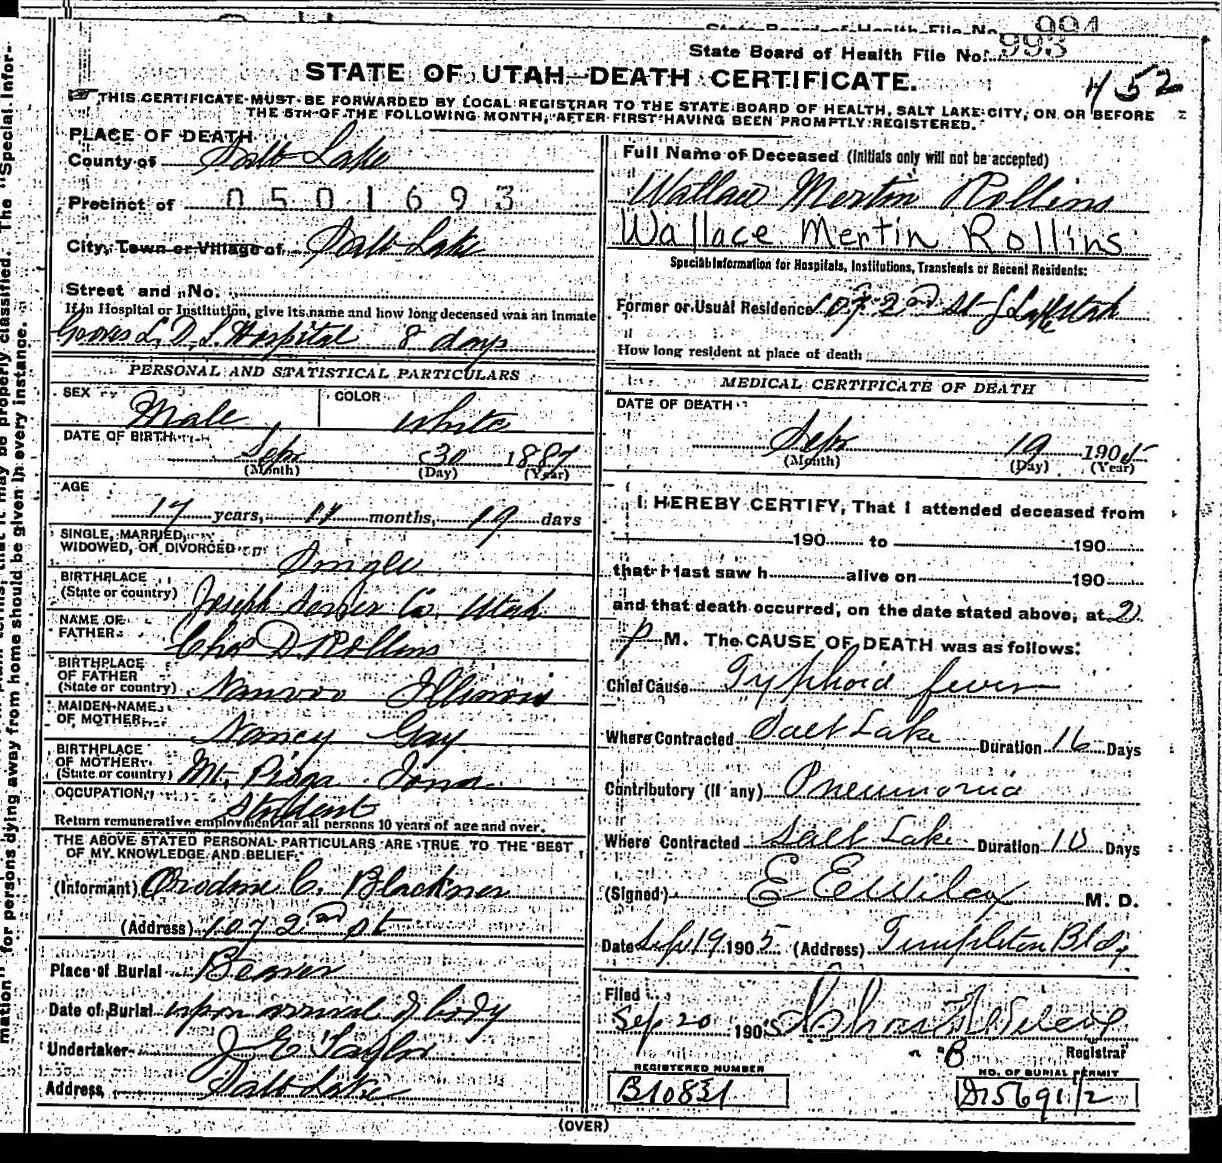 State Board of Health File No. 994
State Board of Health File No. 993
STATE OF UTAH—DEATH CERTIFICATE.
452
THIS CERTIFICATE MUST BE FORWARDED BY LOCAL REGISTRAR TO THE STATE BOARD OF HEALTH, SALT LAKE CITY, ON OR BEFORE
THE 5TH OF THE FOLLOWING MONTH, AFTER FIRST HAVING BEEN PROMPTLY REGISTERED.
PLACE OF DEATH
County of Salt Lake
Precinct of 0501693
City, Town or Village of Salt Lake
Street and No.
If in Hospital or Institution, give its name and how long deceased was an inmate
Groves L. D. S. Hospital 8 days
PERSONAL AND STATISTICAL PARTICULARS
SEX Male COLOR White
DATE OF BIRTH Sep 30 1887
(Month) (Day) (Year)
AGE
17 years, 11 months, 19 days
SINGLE, MARRIED,
WIDOWED, OR DIVORCED Single
BIRTHPLACE
(State or country) Joseph Sevier Co. Utah
NAME OF
FATHER Chas D Rollins
BIRTHPLACE
OF FATHER
(State or country) Nauvoo Illinois
MAIDEN NAME
OF MOTHER Nancy Gay
BIRTHPLACE
OF MOTHER
(State or country) Mt. Pisga Iowa
OCCUPATION Student
Return remunerative employment for all persons 10 years of age and over.
THE ABOVE STATED PERSONAL PARTICULARS ARE TRUE TO THE BEST
OF MY KNOWLEDGE AND BELIEF.
(Informant) C. Blackner
(Address) 107 2nd St
Place of Burial Beaver
Date of Burial upon arrival of body
Undertaker J E Taylor
Address Salt Lake
Full Name of Deceased (Initials only will not be accepted)
Wallace Mertin Rollins
Wallace Mertin Rollins
Special Information for Hospitals, Institutions, Transients or Recent Residents:
Former or Usual Residence 107 2nd St S Lake Utah
How long resident at place of death
MEDICAL CERTIFICATE OF DEATH
DATE OF DEATH
Sep 19 1905
(Month) (Day) (Year)
I HEREBY CERTIFY, That I attended deceased from
190 to 190
that I last saw h alive on 190
and that death occurred, on the date stated above, at 2
P M. The CAUSE OF DEATH was as follows:
Chief Cause Typhoid fever
Where Contracted Salt Lake Duration 16 Days
Contributory (if any) Pneumonia
Where Contracted Salt Lake Duration 10 Days
(Signed) E E Wilcox M. D.
Date Sep 19 1905 (Address) Templeton Bldg
Filed
Sep 20 1905 Wilcox
B Registrar
REGISTERED NUMBER
B10831
NO. OF BURIAL PERMIT
(OVER)
mation" for persons dying away from home should be given in every instance.
terms, that it may be properly classified. The "Special Infor-